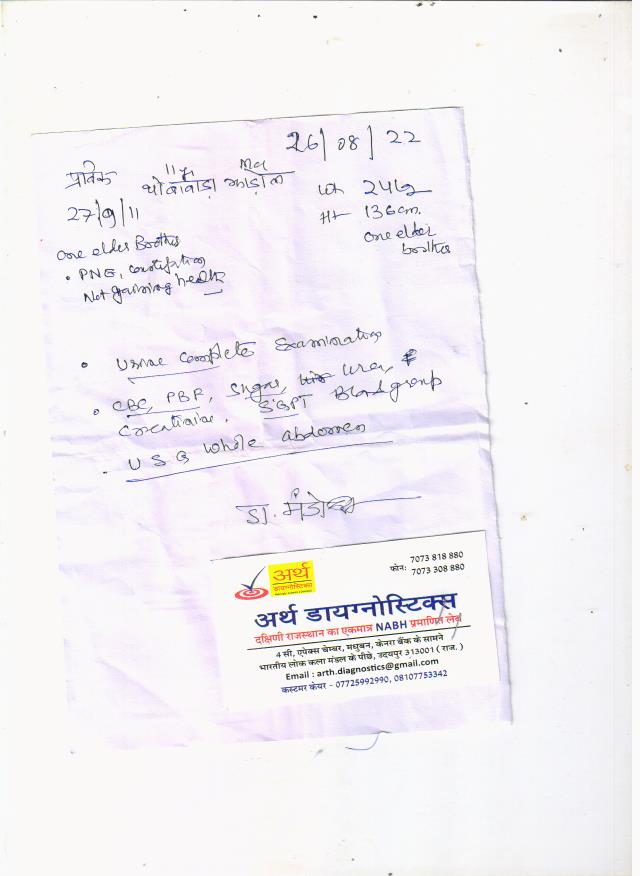 26/08/22
प्रतिक 11 yr Mch
थोबावाड़ा झाड़ोल
27/9/11
Wt 24 kg
Ht 136 cm.
One elder
brother
One elder Brother
• PNG, constipation
Not gaining health
• Urine Complete Examination
• CBC, PBF, Sugar, Urea, &
Creatinine. SGPT Blood group
• USG whole abdomen
डा.
अर्थ
फोन: 7073 818 880
7073 308 880
अर्थ डायग्नोस्टिक्स
दक्षिणी राजस्थान का एकमात्र NABH प्रमाणित लेब
4 सी, एपेक्स चेम्बर, मधुबन, केनरा बैंक के सामने
भारतीय लोक कला मंडल के पीछे, उदयपुर 313001 ( राज. )
Email : arth.diagnostics@gmail.com
कस्टमर केयर - 07725992990, 08107753342